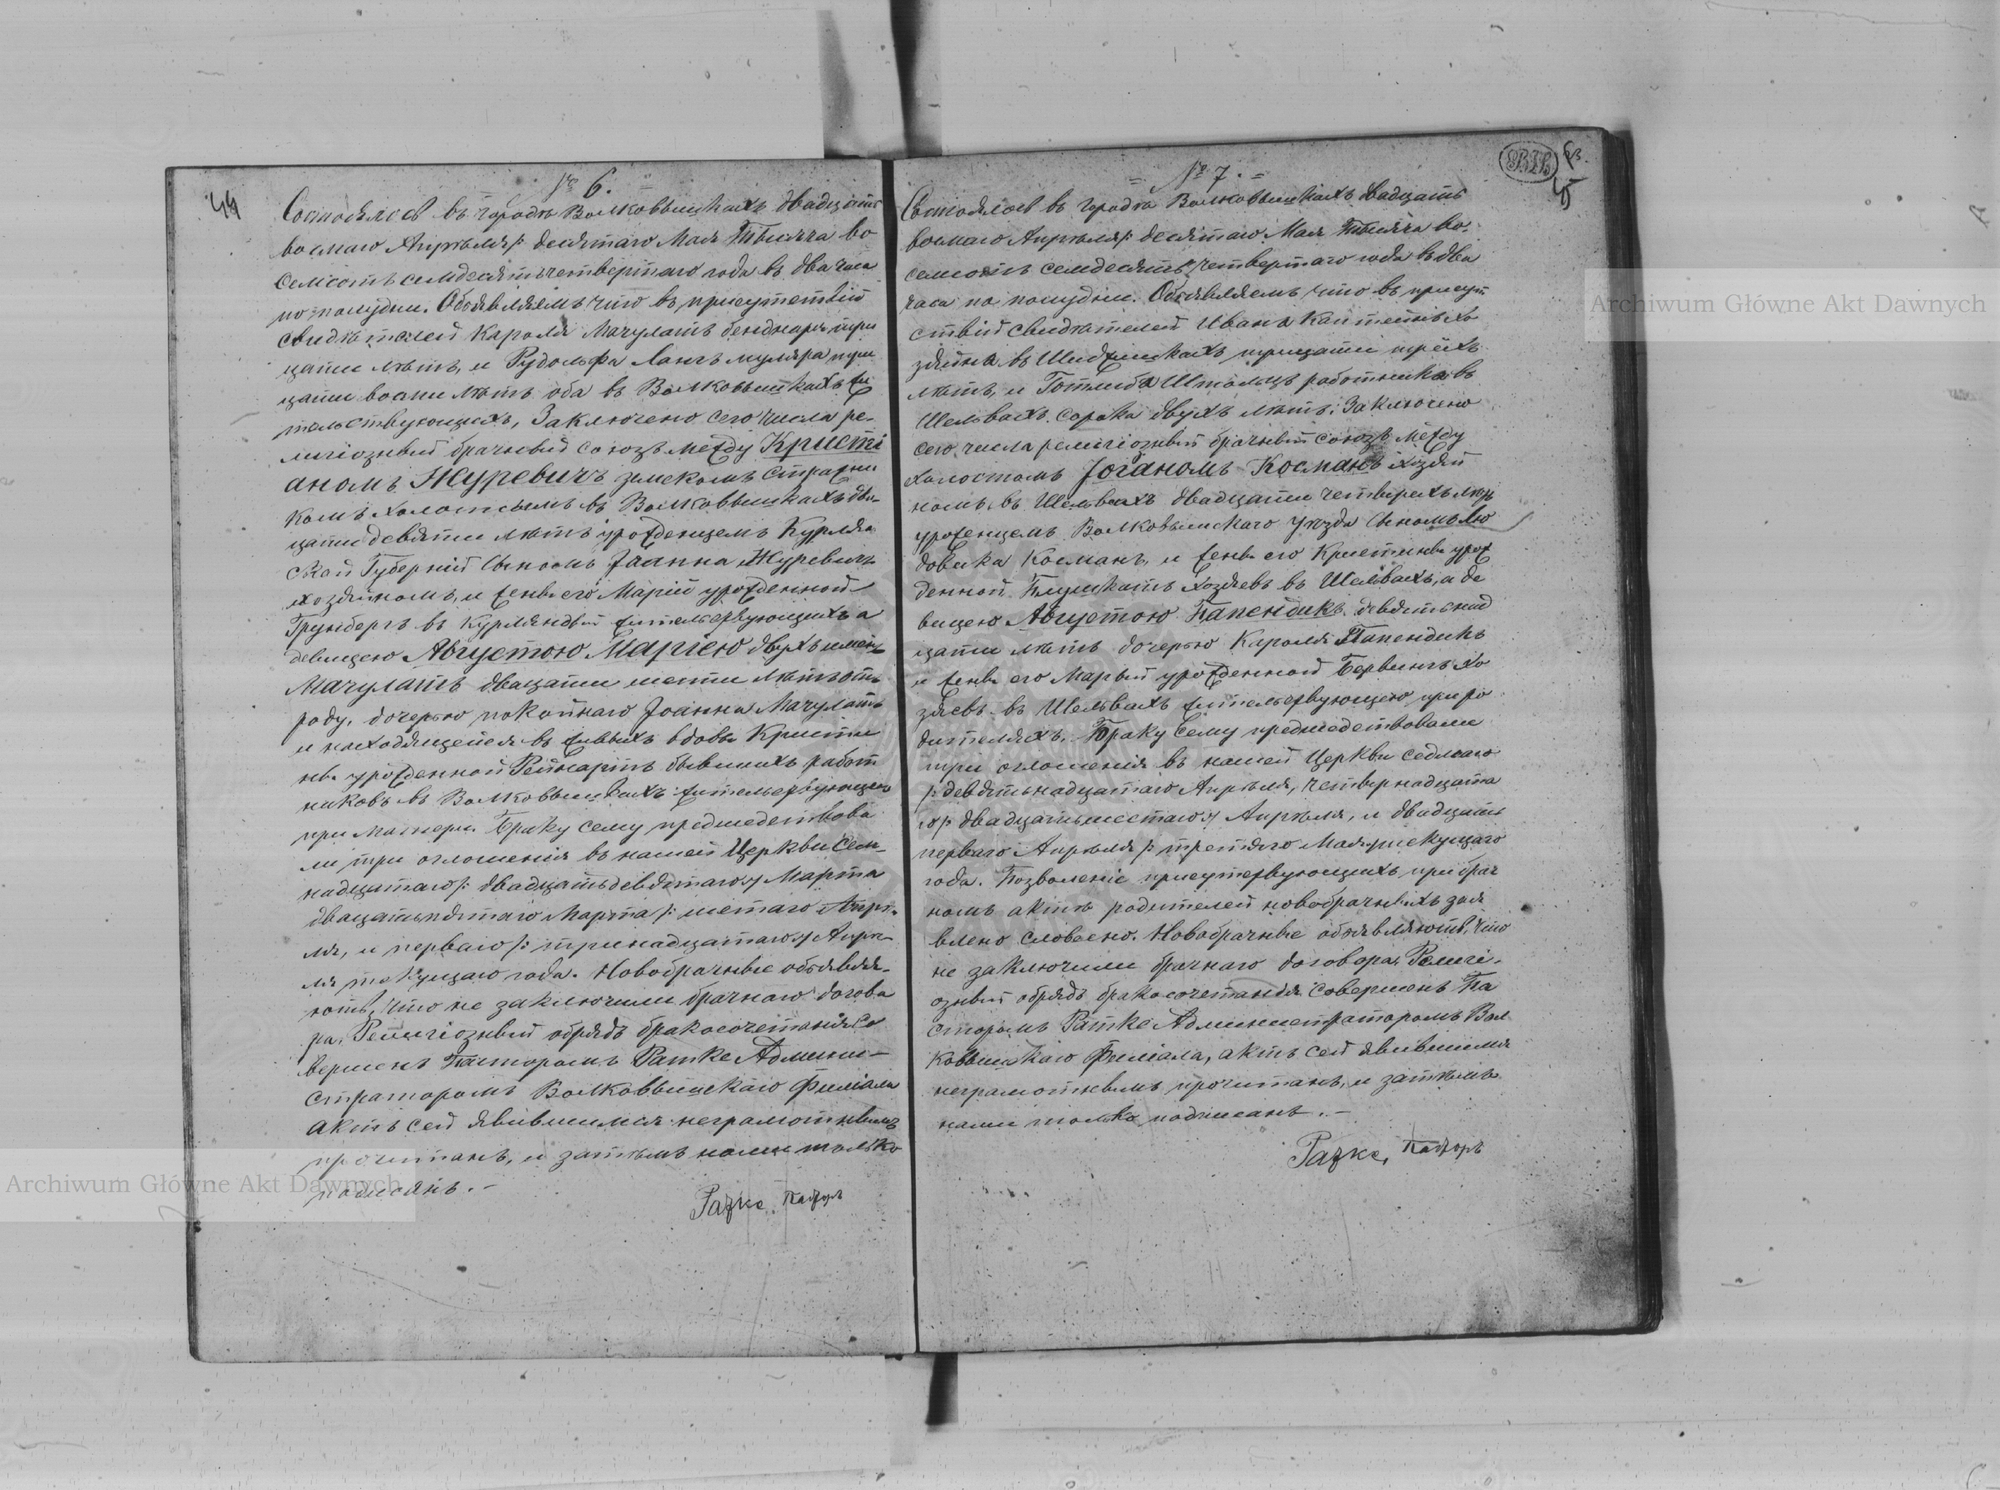 44
№ 6.
Состоялось въ городѣ Волковышкахъ двадцать
восмаго Апрѣля /: десятаго Мая Тысяча во
семсотъ семдесятъ четвертаго года въ два часа
по полудни. Объявляемъ что въ присутствіи
свидѣтелей Кароля Мачулатъ бенднаря три
цати лѣтъ, и Рудольфа Лангъ муляра три
цати восми лѣтъ оба въ Волковышкахъ жи
тельствующихъ, Заключено сего числа ре-
лигіозный брачный союзъ между Кристі
аномъ Журевичъ земскомъ стражни
комъ холостымъ въ Волковышкахъ два
цати девяти лѣтъ урожденцемъ Курлян
ской Губерніи Сыномъ Іоанна Журевичъ
хозяиномъ, и жены его Маріи урожденной
Грунбергъ въ Курляндіи жительствующихъ а
девицею Августою Маріею двухъ имен
Мачулатъ двацати шести лѣтъ отъ
роду, дочерью покойнаго Іоанна Мачулатъ
и находящейся въ живыхъ вдовы Кристи
ны урожденной Рейнартъ бывшихъ работ
никовъ въ Волковышкахъ жительствующею
при матери. Браку сему предшедствова
ли три оглошенія въ нашей Церкви Сем-
надцатаго /: двадцать девятаго :/ Марта
двацать пятаго Марта /: шестаго Апрѣ-
ля, и перваго /: тринадцатаго :/ Апрѣ-
ля текущаго года. Новобрачные объявля-
ютъ, что не заключили брачнаго догово
ра, Религіозный обрядъ бракосочетанія со
вершенъ Пасторомъ Ратке Админи-
страторомъ Волковышскаго Филіала
актъ сей явившимся неграмотнымъ
прочитанъ, и затѣмъ нами только
подписанъ. –
Ратке, Пасторъ
ВІБ
63.
45
№ 7.
Состоялось въ городѣ Волковышкахъ двадцать
восмаго Апрѣля /: десятаго Мая Тысяча во-
семсотъ семдесятъ четвертаго года въ два
часа по полудни. Объявляемъ что въ присут
ствіи свидѣтелей Ивана Каптейнъ хо
зяина въ Шидлишкахъ трицати трёхъ
лѣтъ, и Готлиба Штольцъ работника въ
Шельвахъ сорока двухъ лѣтъ; Заключено
сего числа религіозный брачный союзъ между
холостомъ Іоганомъ Космань хозяи
номъ въ Шельвахъ двадцати четырехъ лѣтъ
урожденцемъ Волковышскаго уѣзда Сыномъ Лю
довика Косманъ, и жены его Кристины урож
денной Плушкатъ хозяевъ въ Шельвахъ, а де
вицею Августою Папендикъ девятьнад
цати лѣтъ дочерью Кароля Папендикъ
и жены его Маріи урожденной Бервингъ хо
зяевъ въ Шельвахъ жительствующею при ро
дителяхъ. Браку сему предшедствовали
три оглошенія въ нашей Церкви седмаго
/: девятьнадцатаго Апрѣля, четвернадцата
го /: двадцать шестаго :/ Апрѣля, и двадцать
перваго Апрѣля /: третяго Мая :/ текущаго
года. Позволеніе присутствующихъ при брач
номъ актѣ родителей новобрачныхъ зая
влено словесно. Новобрачные объявляютъ, что
не заключили брачнаго договора, Религі-
озный обрядъ бракосочетанія совершенъ Па
сторомъ Ратке Администраторомъ Вол
ковышскаго Филіала, актъ сей явившимся
неграмотнымъ прочитанъ, и затѣмъ
нами только подписанъ. –
Ратке, Пасторъ
Archiwum Główne Akt Dawnych
Archiwum Główne Akt Dawnych